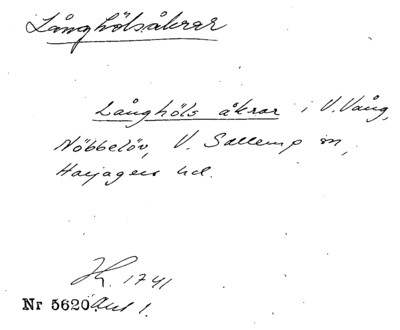 Långhölsåkrar
Långhöls åkrar i V. Vång,
Nöbbelöv, V. Sallerup sn,
Harjagers hd.
1741
Nr 5620 Akt 1.